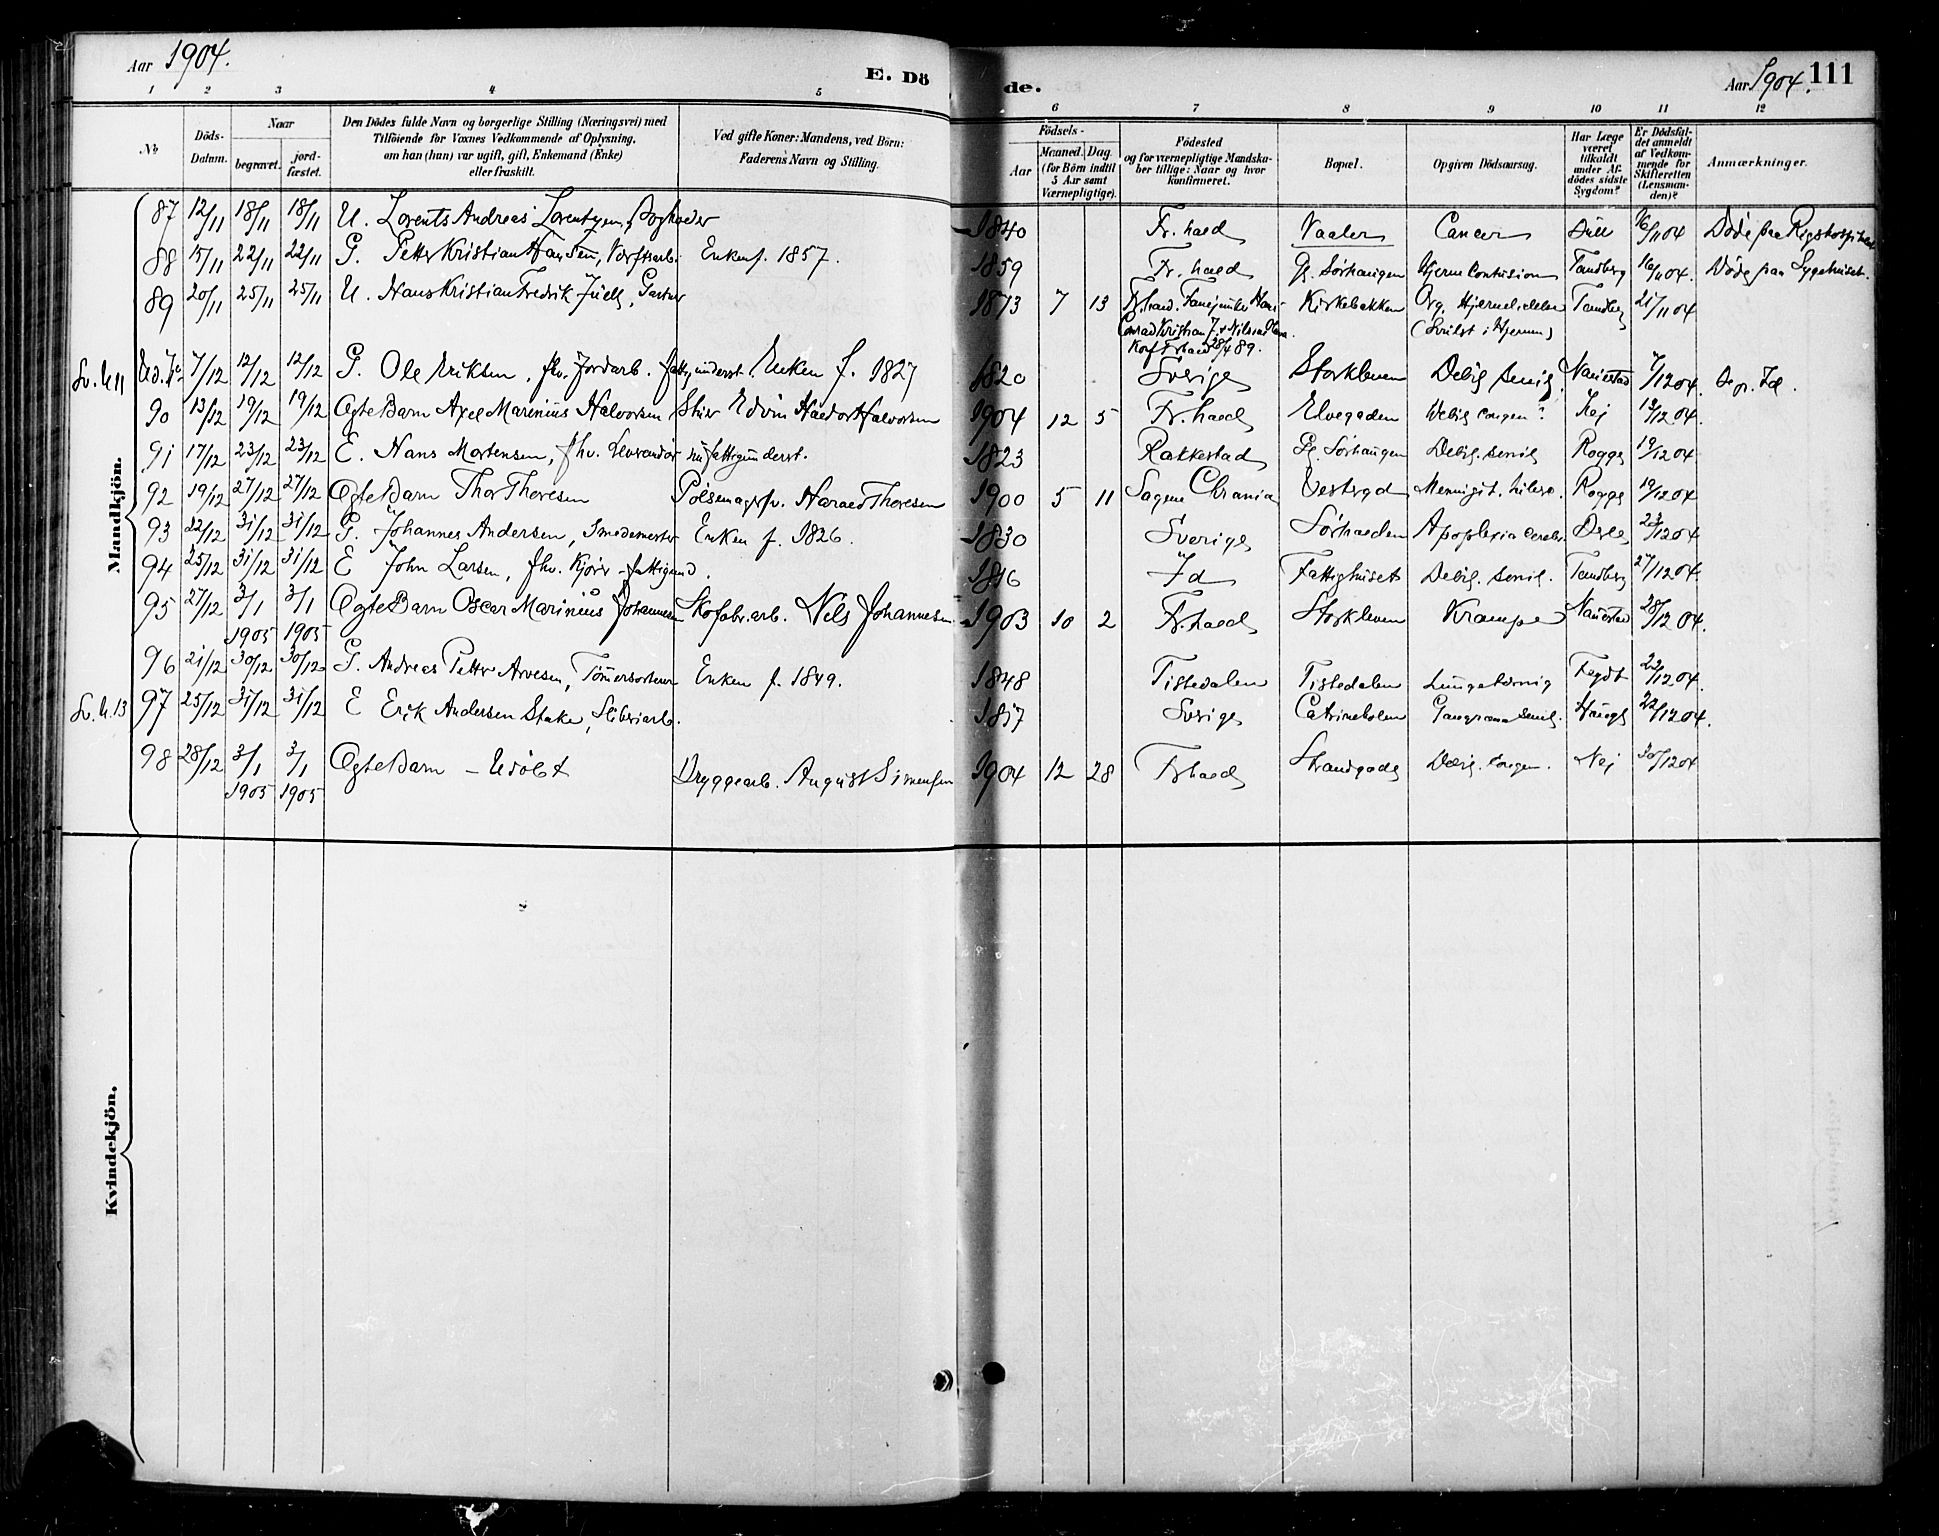 Aar 1904.
E. Dö
de.
Aar 1904.
111
1 2 3 4 5 6 7 8 9 10 11 12
No
Döds-Datum.
Naar
begravet.
jord-fæstet.
Den Dödes fulde Navn og borgerlige Stilling (Næringsvei) med
Tilföiende for Voxnes Vedkommende af Oplysning,
om han (hun) var ugift, gift, Enkemand (Enke)
eller fraskilt.
Ved gifte Koner: Mandens, ved Börn:
Faderens Navn og Stilling.
Födsels-
Aar
Maaned. Dag.
(for Börn indtil
5 Aar samt
Værnepligtige).
Födested
og for værnepligtige Mandska-
ber tillige: Naar og hvor
konfirmeret.
Bopæl.
Opgiven Dödsaarsag.
Har Læge
været
tilkaldt
under Af-
dödes sidste
Sygdom?
Er Dödsfal-
det anmeldt
af Vedkom-
mende for
Skifteretten
(Lensman-
den)?
Anmærkninger.
Mandkjön.
87 12/11 18/11 18/11 U. Lorents Andreas Lorentzen, Bogholder 1840 Fr.hald Vaaler Cancer 16/11 04 Döde paa Rigshospitalet
88 15/11 22/11 22/11 G. Petter Kristian Hansen, Værftsarb. Enke f. 1857. 1859 Fr. hald Gl. Sörhaugen Hjerne Contusion Tandberg 16/11 04. Döde paa Sygehuset.
89 20/11 25/11 25/11 U. Hans Kristian Fredrik Juell, Gartner 1873 7 13 Fr.hald. Kirkebakken Org. Hjernelidelse Tandberg 21/11 04
Conrad Kristian J. (Svulst i Hjernen)
Konf Fr.hald 28/4 89.
7/12 12/12 12/12 G. Ole Eriksen, fhv. Jordarb. fattigunderst. Enken f. 1827 1820 Sverige Storkleven Debil. senil. Nauestad 7/12 04.
90 13/12 19/12 19/12 Ægte Barn Axel Marenius Halvorsen Edvin Haldor Halvorsen 1904 12 5 Fr.hald Elvegaden Debil. congen? Nej 13/12 04.
91 17/12 23/12 23/12 E. Hans Mortensen, fhv. nu fattigunderst. 1823 Rakkestad Gl. Sörhaugen Debil. senil. Rogge 19/12 04
92 19/12 27/12 27/12 Ægte Barn Thor Thoresen Pölsemagersv. Harald Thoresen 1900 5 11 Sagene Chrania Vestregd Meningit. tuberc. Rogge 19/12 04
93 22/12 31/12 31/12 G. Johannes Andersen, Smedemester Enken f. 1826. 1830 Sverige Sörhalden Apoplexia cerebr. 23/12 04
94 25/12 31/12 31/12 E John Larsen, fhv. Kjörer - fattigund. 1816 Id Fattighuset Debil. senil. Tandberg 27/12 04.
95 27/12 3/1 1905 3/1 1905 Ægte Barn Oscar Marinius Johannesen Skofabr.arb. Nels Johannesen 1903 10 2 Fr.hald Storkleven Krampe Nauestad 28/12 04.
96 21/12 30/12 30/12 G. Andreas Petter Arvesen, Tömmersorterer Enken f. 1849. 1848 Tistedalen Tistedalen Lungebetændelse Fegdt 23/12 04.
Sv. U. 13 97 25/12 31/12 31/12 E Erik Andersen Stake, Sliberiarb. 1817 Sverige Catrineholm Gangræna senil. Haugh 22/12 04.
98 28/12 3/1 1905 3/1 1905 Ægte Barn - Udöbt Bryggearb. August Simensen 1904 12 28 Fr.hald Strandgade Debil. congen. Nej 30/12 04
Kvindekjön.